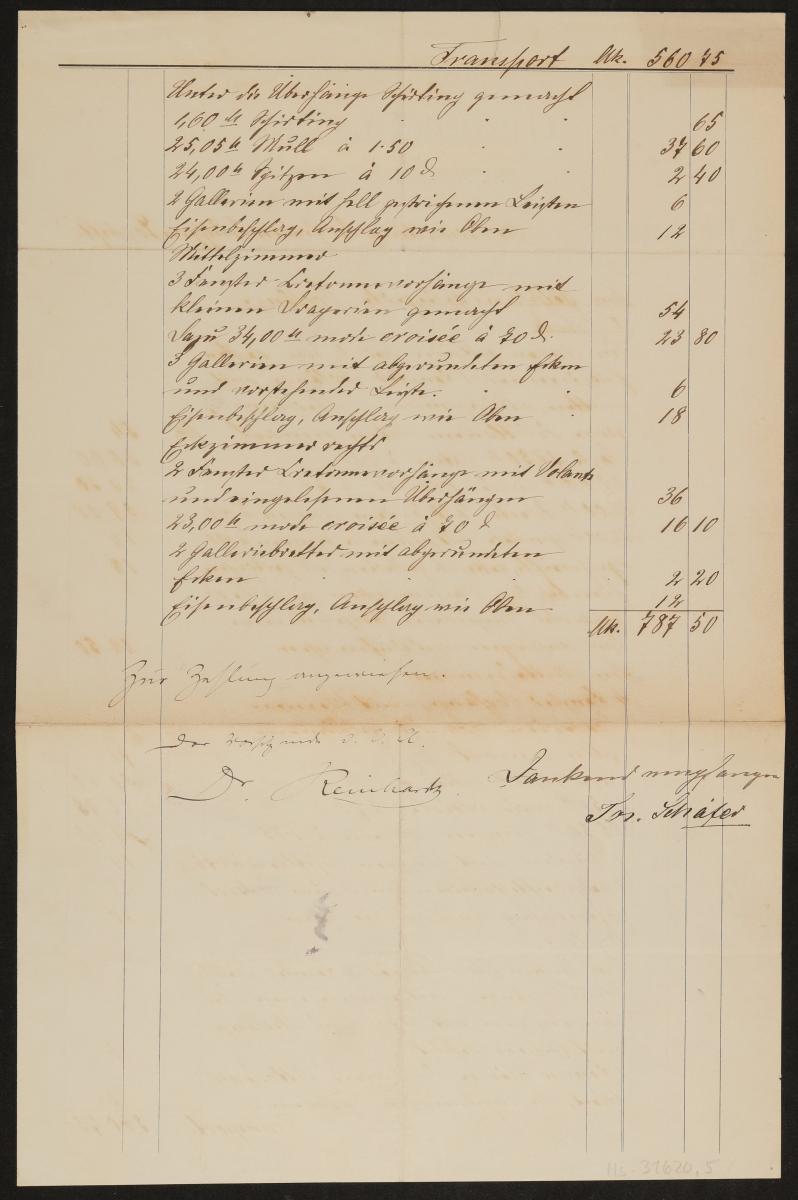 Transport Mk. 560 75
Unter die Überhänge Schirting gemacht
1,60 Schirting 65
25,05 Mull à 1.50 37 60
24,00 Spitzen à 10 d 2 40
2 Gallerien mit hell gestrichenen Leisten 6
Eisenbeschlag, Anschlag wie Oben 12
Mittelzimmer
3 Fenster Cretonnevorhänge mit
kleinen Draperien gemacht 54
Dazu 34,00 mode croisée à 70 d. 23 80
3 Gallerien mit abgerundeten Ecken
und vorstehender Leiste. 6
Eisenbeschlag, Anschlag wie Oben 18
Eckzimmer rechts
2 Fenster Cretonnevorhänge mit Volants
und eingelesenen Überhängen 36
23,00 mode croisée à 70 d 16 10
2 Galleriebretter mit abgerundeten
Ecken 2 20
Eisenbeschlag, Anschlag wie Oben 12
Mk. 787 50
Zur Zahlung angewiesen.
Der Vorsitzende d. V. A.
Dr. Reinhartz. Dankend empfangen
Jos. Schäfer
Hs-31620,5